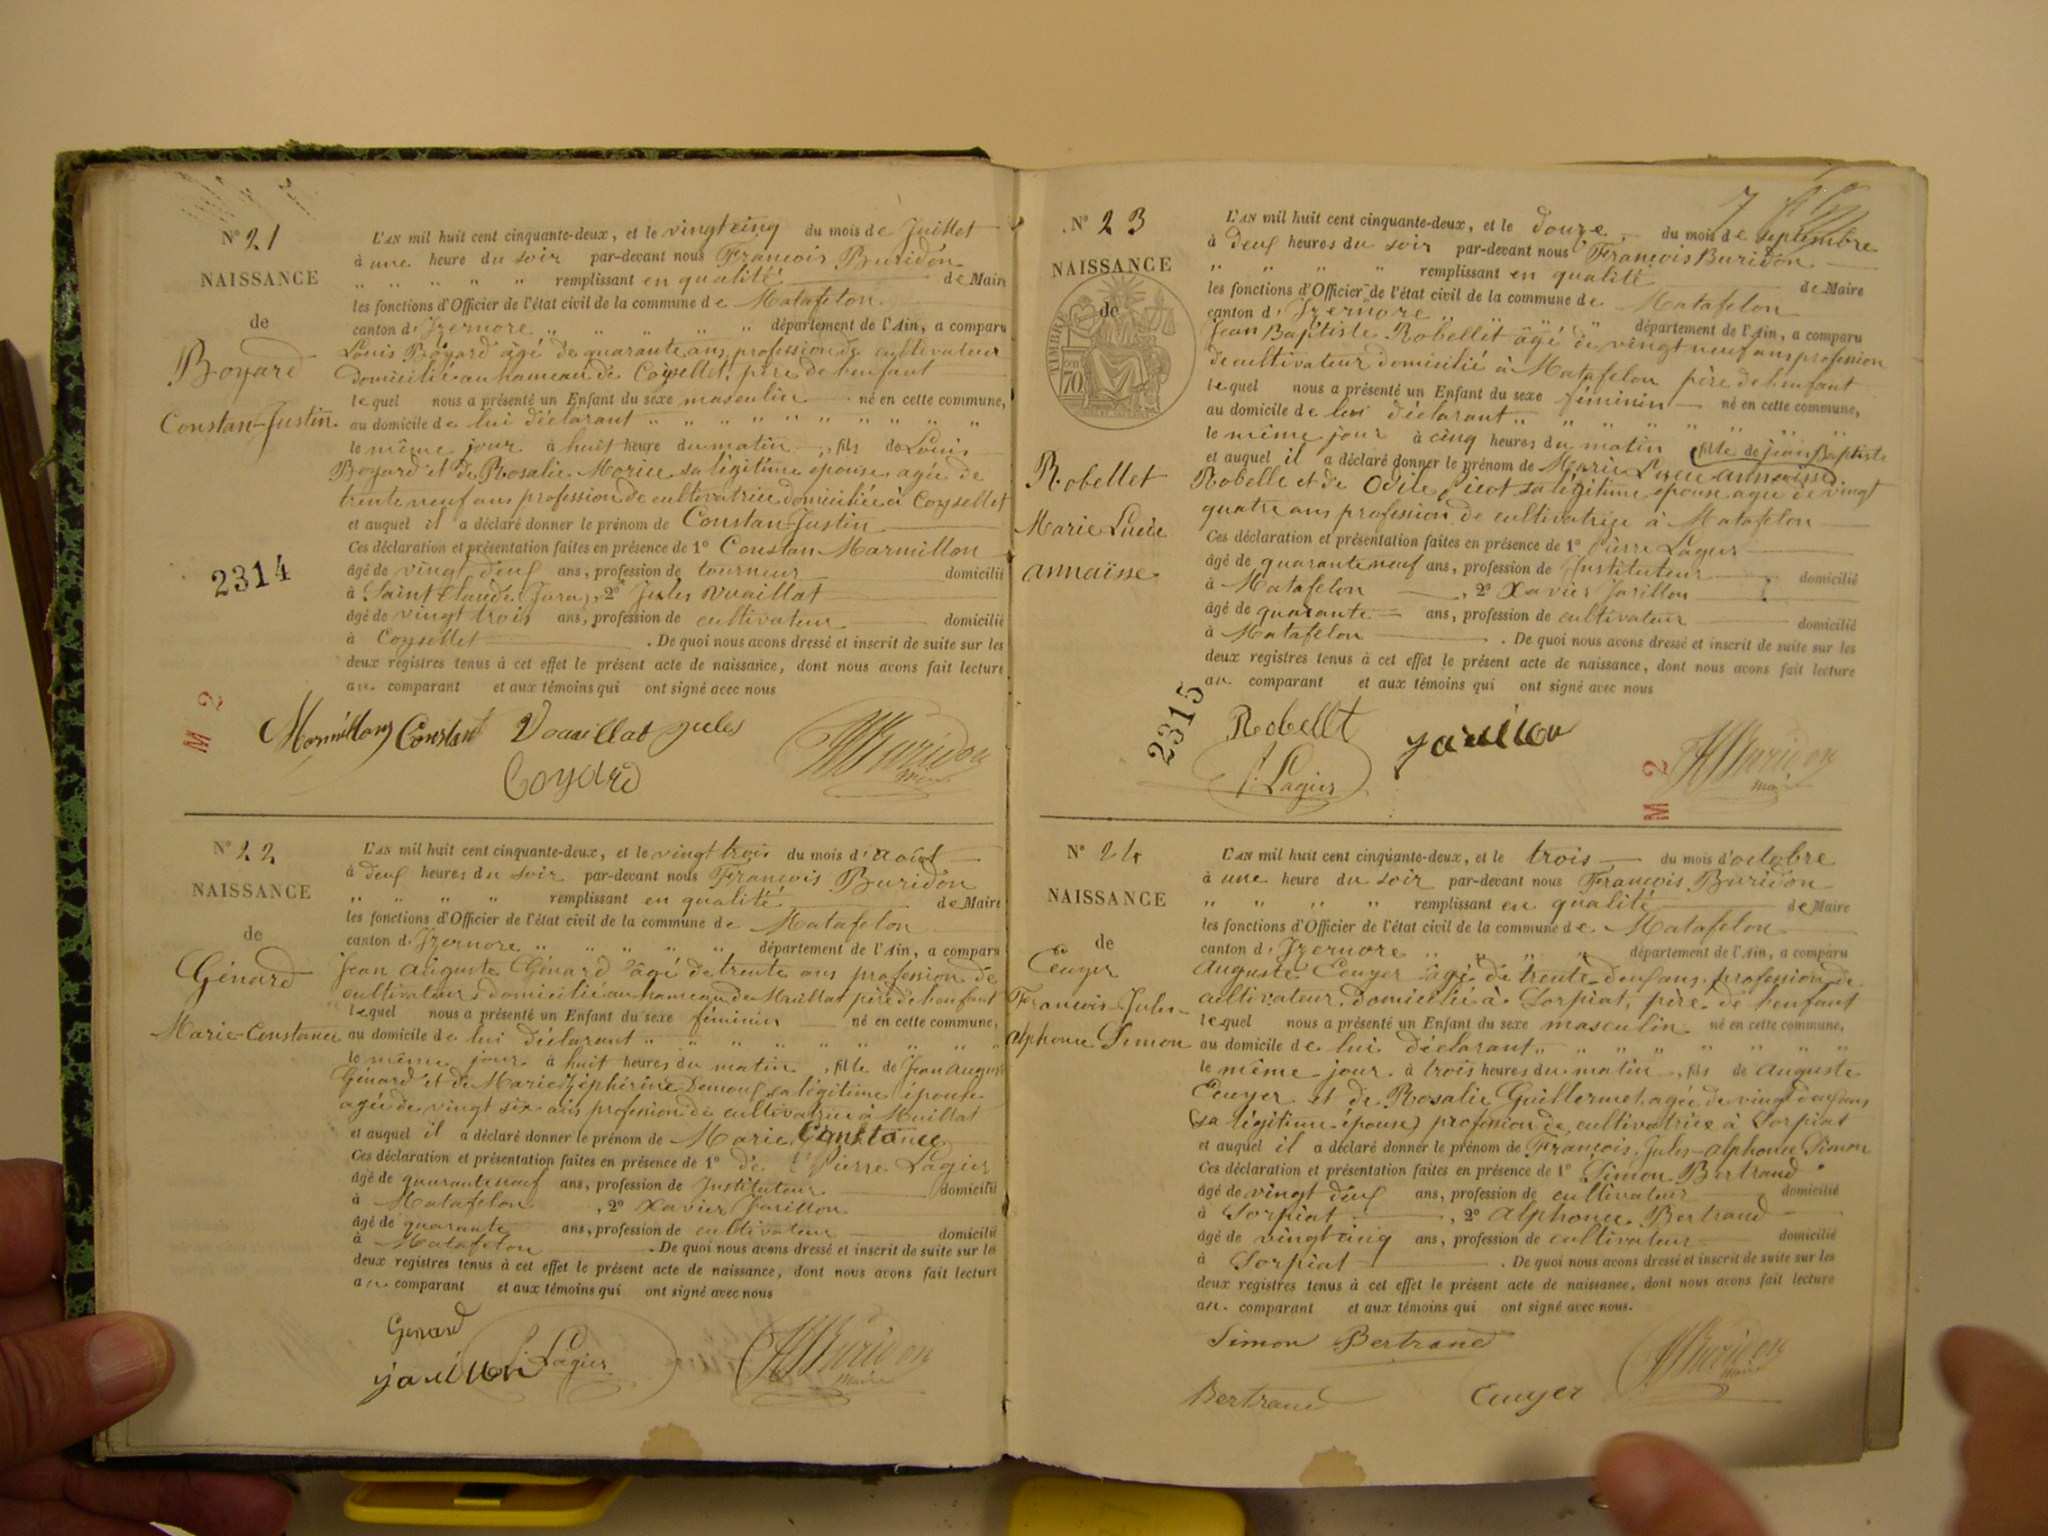 N° 21
NAISSANCE
de
Boyard
Constan-Justin
2314
M 2
L'AN mil huit cent cinquante-deux, et le vingt cinq du mois de Juillet
à une heure du soir par-devant nous François Buridon
" " " " " remplissant en qualité de Maire
les fonctions d'Officier de l'état civil de la commune de Matafelon
canton d'Izernore " " " " " département de l'Ain, a comparu
Louis Boyard âgé de quarante ans, profession de cultivateur
domicilié au hameau de Coysellet, père de l'enfant
lequel nous a présenté un Enfant du sexe masculin né en cette commune,
au domicile de lui déclarant " " " " " " " " "
le même jour à huit heure du matin, fils de Louis
Boyard et de Rosalie Morice sa légitime épouse agée de
trente neuf ans profession de cultivatrice domiciliée à Coysellet
et auquel il a déclaré donner le prénom de Constan-Justin
Ces déclaration et présentation faites en présence de 1° Constan Marmillon
âgé de vingt deux ans, profession de tourneur domicilié
à Saint Claude (Jura), 2° Jules Vuaillat
âgé de vingt trois ans, profession de cultivateur domicilié
à Coysellet . De quoi nous avons dressé et inscrit de suite sur les
deux registres tenus à cet effet le présent acte de naissance, dont nous avons fait lecture
au comparant et aux témoins qui ont signé avec nous
Marmillon Constant Vouaillat jules Buridon
maire
Boyard
N° 22
NAISSANCE
de
Génard
Marie-Constance
L'AN mil huit cent cinquante-deux, et le vingt trois du mois d'août
à deux heures du soir par-devant nous François Buridon
" " " " remplissant en qualité de Maire
les fonctions d'Officier de l'état civil de la commune de Matafelon
canton d'Izernore " " " " " département de l'Ain, a comparu
Jean auguste Génard âgé de trente ans profession de
cultivateur domicilié au hameau de Muillat père de l'enfant
lequel nous a présenté un Enfant du sexe féminin né en cette commune,
au domicile de lui déclarant " " " " " " " " "
le même jour à huit heures du matin, fille de Jean August
Génard et de Marie Zéphérine Demouf sa légitime épouse
agée de vingt six ans profession de cultivatrice à Muillat
et auquel il a déclaré donner le prénom de Marie Constance
Ces déclaration et présentation faites en présence de 1° de Pierre Lagier
âgé de quarante neuf ans, profession de Instituteur domicilié
à Matafelon , 2° Xavier Jarillon
âgé de quarante ans, profession de cultivateur domicilié
à Matafelon . De quoi nous avons dressé et inscrit de suite sur les
deux registres tenus à cet effet le présent acte de naissance, dont nous avons fait lecture
au comparant et aux témoins qui ont signé avec nous
Génard
jarillon P. Lagier Buridon
maire
N° 23
NAISSANCE
de
TIMBRE
70
Robellet
Marie Lucie
annaïsse
2315
M 2
7
L'AN mil huit cent cinquante-deux, et le douze du mois de septembre
à deux heures du soir par-devant nous François Buridon
" " " " remplissant en qualité de Maire
les fonctions d'Officier de l'état civil de la commune de Matafelon
canton d'Izernore " " " " département de l'Ain, a comparu
Jean Baptiste Robellet âgé de vingt neuf ans profession
de cultivateur domicilié à Matafelon père de l'enfant
lequel nous a présenté un Enfant du sexe féminin né en cette commune,
au domicile de lui déclarant " " " " " " "
le même jour à cinq heures du matin fille de jean Baptiste
et auquel il a déclaré donner le prénom de Marie Lucie annaïsse
Robelle et de Odile Picot sa légitime épouse agée de vingt
quatre ans profession de cultivatrice à Matafelon
Ces déclaration et présentation faites en présence de 1° Pierre Lagier
âgé de quarante neuf ans, profession de Instituteur domicilié
à Matafelon , 2° Xavier Jarillon
âgé de quarante ans, profession de cultivateur domicilié
à Matafelon . De quoi nous avons dressé et inscrit de suite sur les
deux registres tenus à cet effet le présent acte de naissance, dont nous avons fait lecture
au comparant et aux témoins qui ont signé avec nous
Robellt jarillon Buridon
maire
P. Lagier
N° 24
NAISSANCE
de
Ecuyer
François-Jules
alphonse Simon
L'AN mil huit cent cinquante-deux, et le trois du mois d'octobre
à une heure du soir par-devant nous François Buridon
" " " " remplissant en qualité de Maire
les fonctions d'Officier de l'état civil de la commune de Matafelon
canton d'Izernore " " " " département de l'Ain, a comparu
Auguste Ecuyer âgé de trente deux ans, profession de
cultivateur, domicilié à Corpiat, père de l'enfant
lequel nous a présenté un Enfant du sexe masculin né en cette commune,
au domicile de lui déclarant " " " " " " " "
le même jour à trois heures du matin, fils de Auguste
Ecuyer et de Rosalie Guillermet agée de vingt deux ans
(sa légitime épouse) profession de cultivatrice à Corpiat
et auquel il a déclaré donner le prénom de François, Jules-alphonse Simon
Ces déclaration et présentation faites en présence de 1° Simon Bertrand
âgé de vingt deux ans, profession de cultivateur domicilié
à Corpiat , 2° Alphonse Bertrand
âgé de vingt cinq ans, profession de cultivateur domicilié
à Corpiat . De quoi nous avons dressé et inscrit de suite sur les
deux registres tenus à cet effet le présent acte de naissance, dont nous avons fait lecture
au comparant et aux témoins qui ont signé avec nous.
Simon Bertrand Buridon
maire
Bertrand Ecuyer